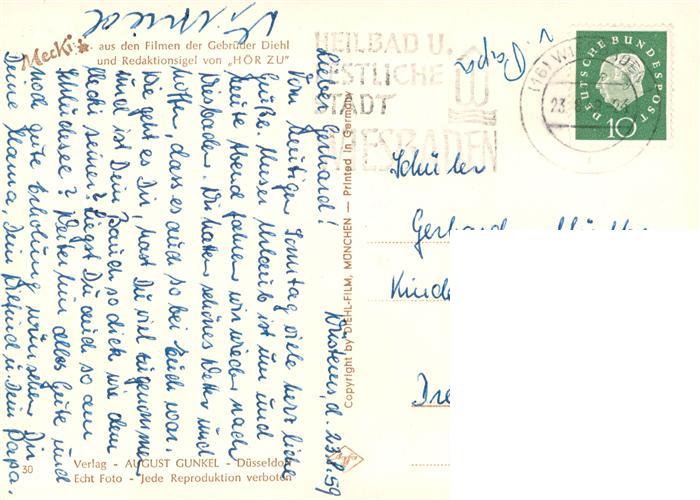 Mecki
aus den Filmen der Gebrüder Diehl
und Redaktionsigel von „HÖR ZU"
HEILBAD U.
FESTLICHE
STADT
WIESBADEN
(16) WI
23.
DEUTSCHE BUNDESPOST
10
u. Papa
Schüler
Gerhard
Kinde
Dre
Copyright by DIEHL-FILM, MÜNCHEN — Printed in Germany
d. 23.8.59
Lieber Gerhard!
Vom heutigen Sonntag viele herzliche
Grüße. Unser Urlaub ist um und
heute Abend fahren wir wieder nach
Wiesbaden. Wir hatten schönes Wetter und
hoffen, dass es auch so bei Euch war.
Wie geht es Dir, hast Du viel zugenommen
und ist Dein Bauch so dick wie dem
Mecki seiner? Liegst Du auch so am
Schluchsee? Weiterhin alles Gute und
noch gute Erholung wünschen Dir
Deine Mama, Dein u. Dein Papa.
30
Verlag - AUGUST GUNKEL - Düsseldorf
Echt Foto - Jede Reproduktion verboten